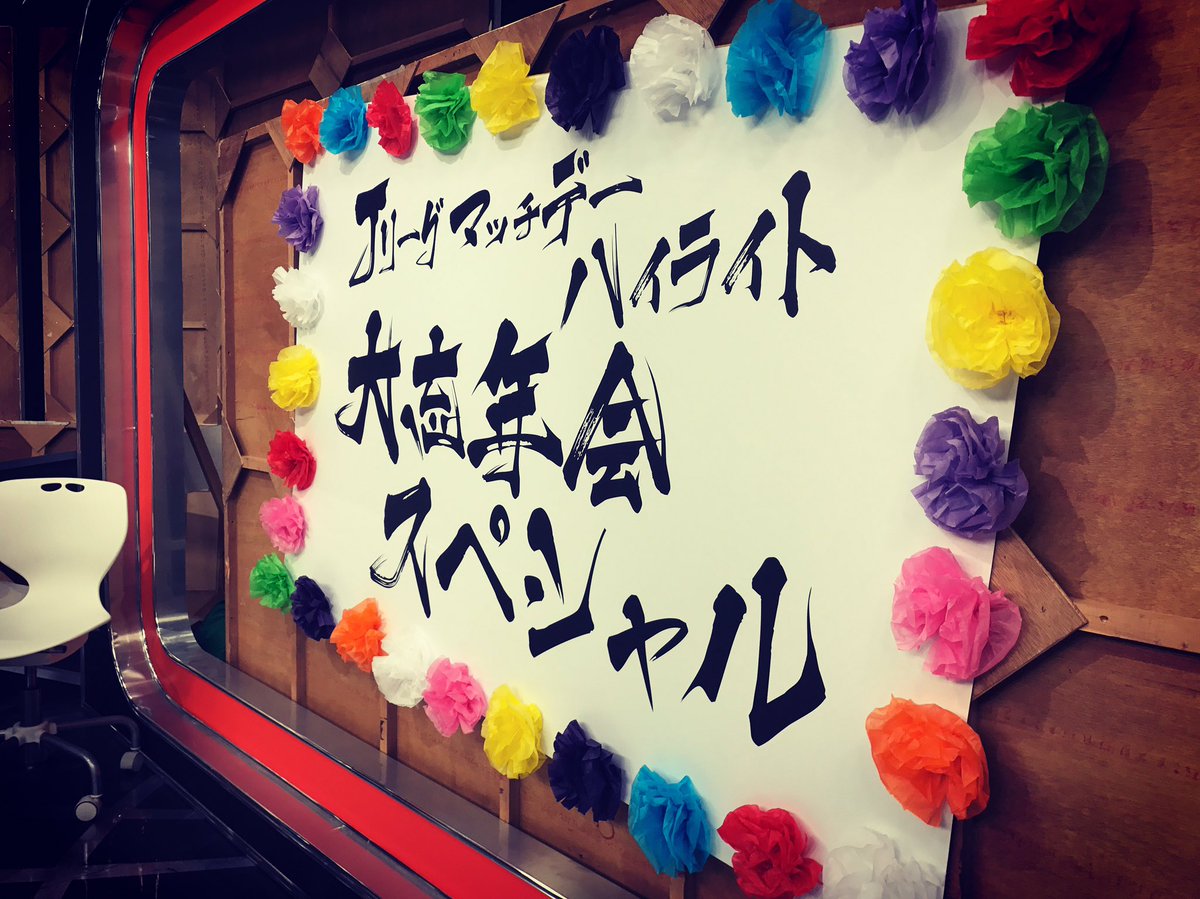 Jリーグ マッチデー
ハイライト
大忘年会
スペシャル